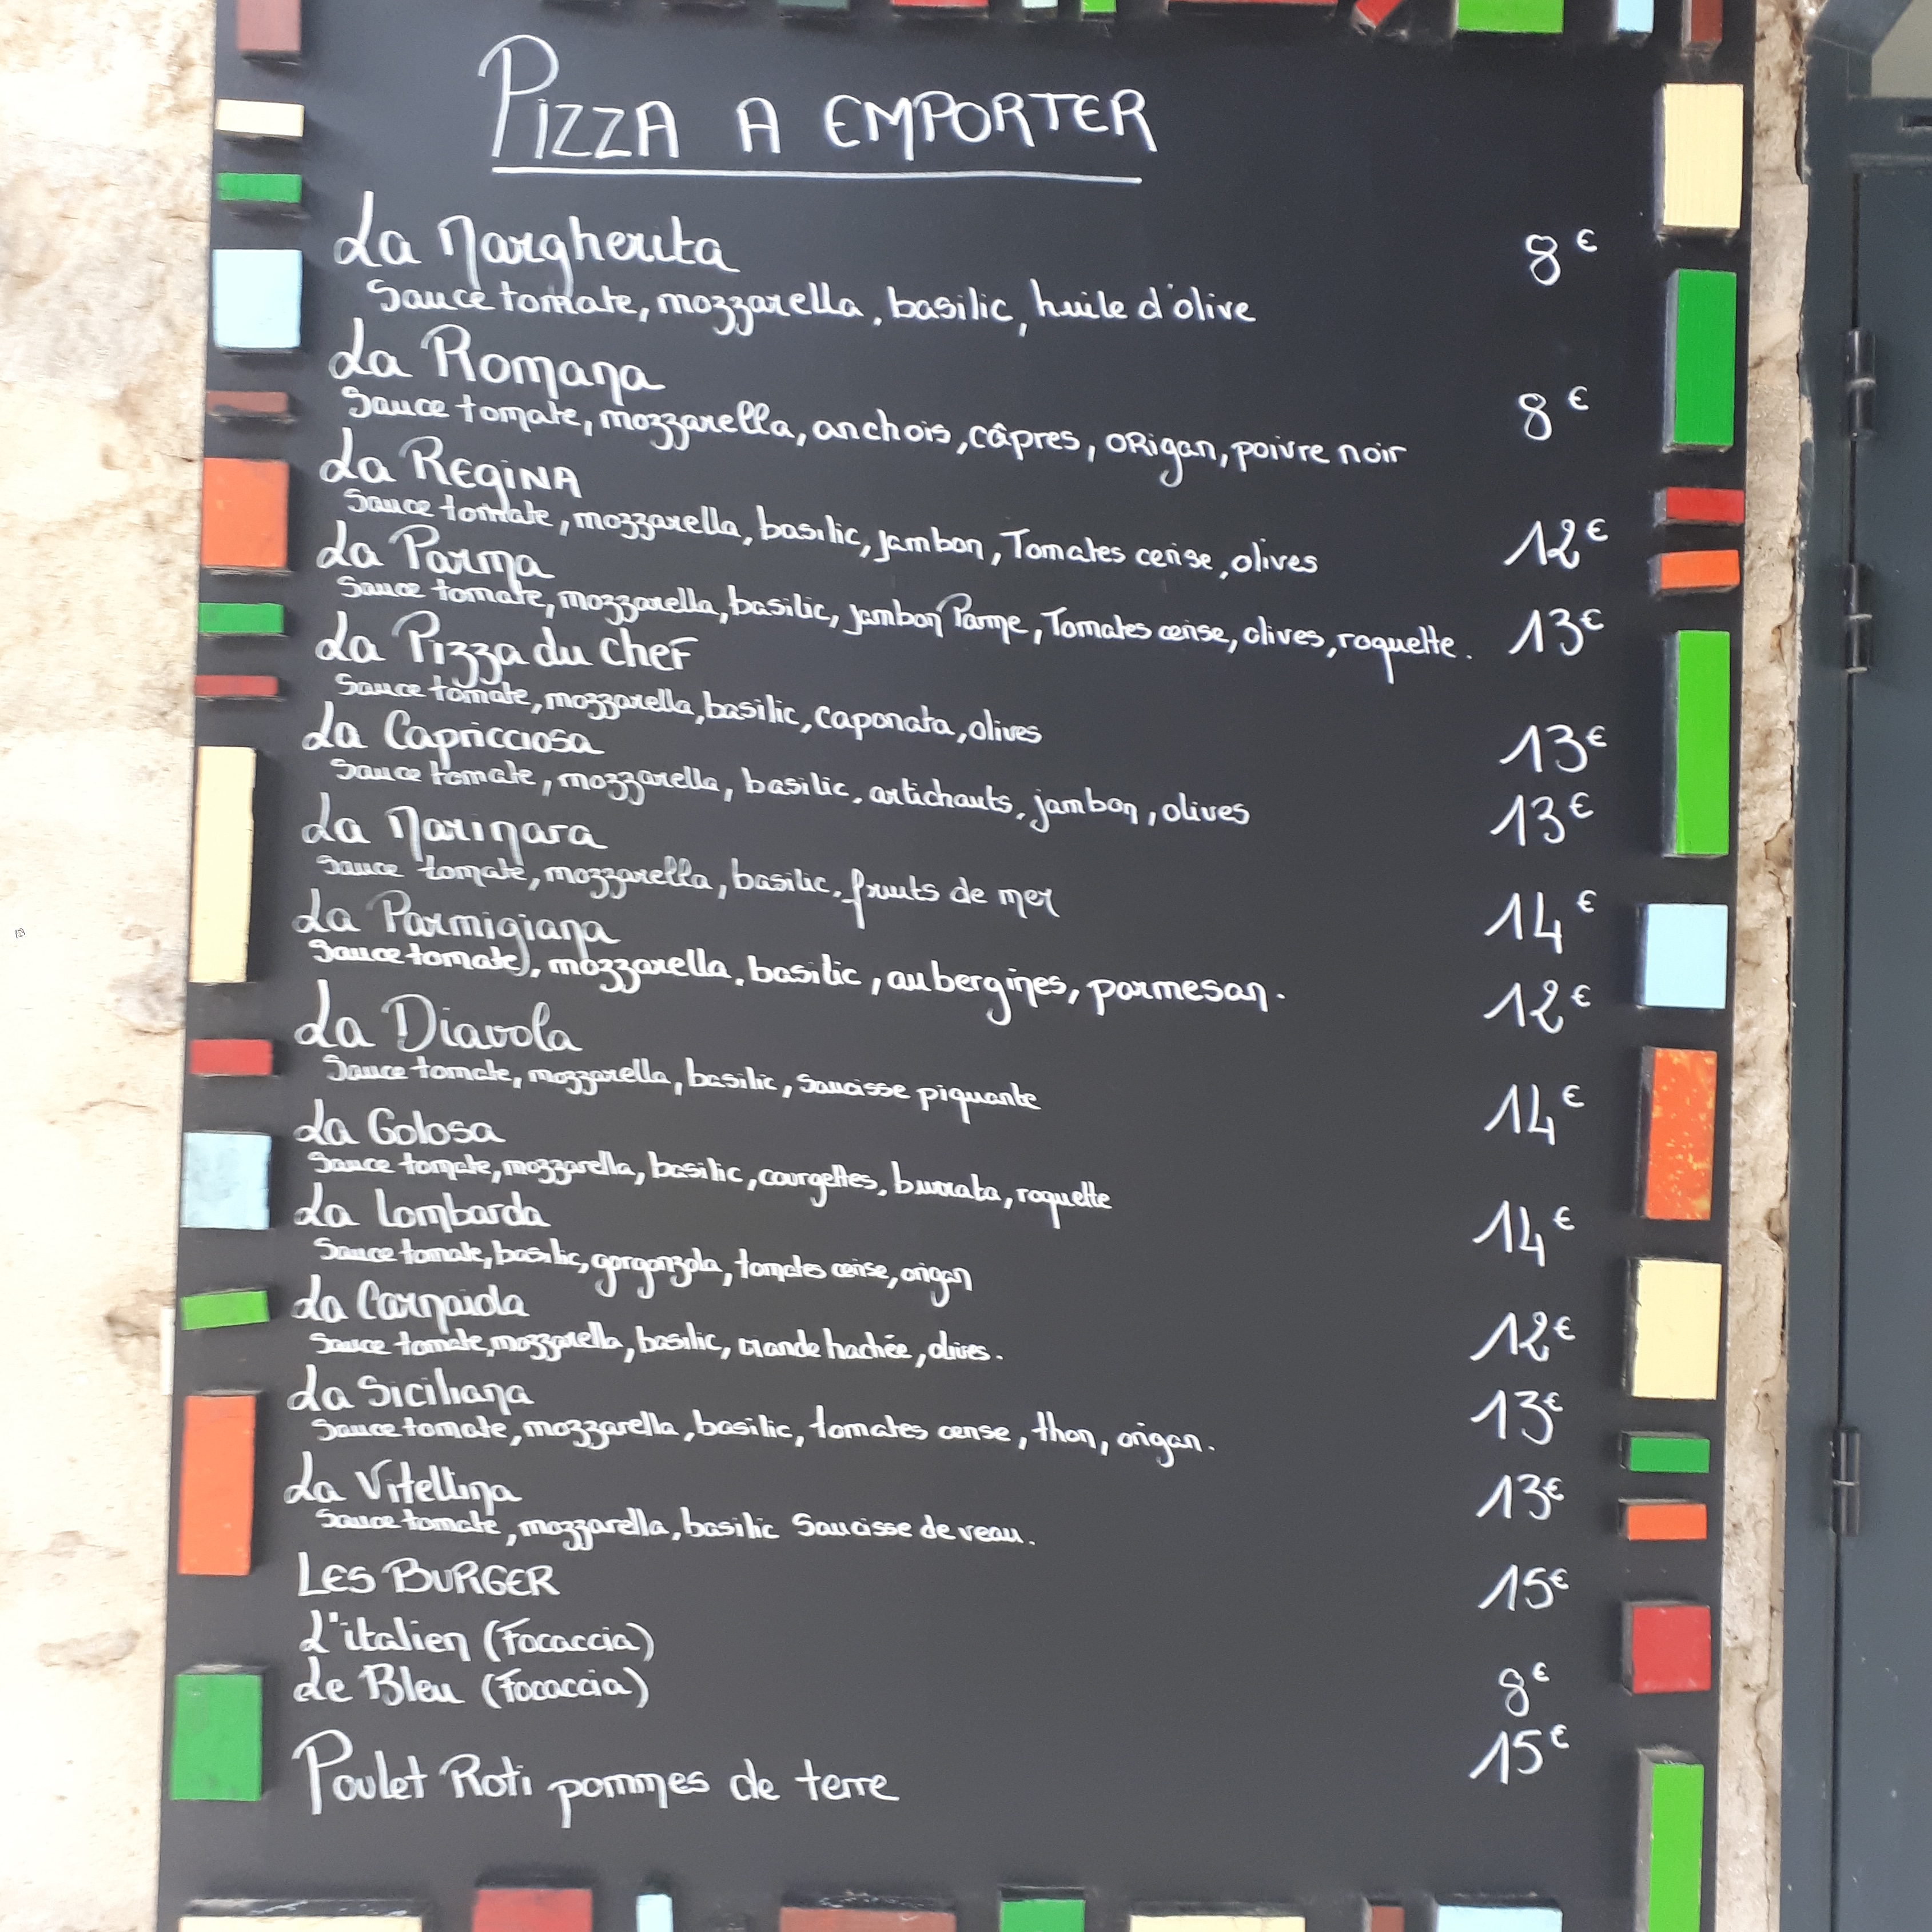 PIZZA A EMPORTER
La Margherita 8€
Sauce tomate, mozzarella, basilic, huile d'olive
La Romana 8€
Sauce tomate, mozzarella, anchois, câpres, ORigan, poivre noir
La REGINA
Sauce tomate, mozzarella, basilic, jambon, Tomates cerise, olives 12€
La Parma
Sauce tomate, mozzarella, basilic, jambon Parme, Tomates cerise, olives, roquette. 13€
La Pizza du chef
Sauce tomate, mozzarella, basilic, caponata, olives 13€
La Capricciosa
Sauce tomate, mozzarella, basilic, artichauts, jambon, olives 13€
La Marinara
Sauce tomate, mozzarella, basilic, fruits de mer 14€
La Parmigiana
Sauce tomate, mozzarella, basilic, aubergines, parmesan. 12€
La Diavola
Sauce tomate, mozzarella, basilic, saucisse piquante 14€
La Golosa
Sauce tomate, mozzarella, basilic, courgettes, burrata, roquette 14€
La Lombarda
Sauce tomate, basilic, gorgonzola, tomates cerise, origan 12€
La Carnaiola
Sauce tomate, mozzarella, basilic, viande hachée, olives. 13€
La Siciliana
Sauce tomate, mozzarella, basilic, tomates cerise, thon, origan. 13€
La Vitellina
Sauce tomate, mozzarella, basilic Saucisse de veau. 15€
LES BURGER
L'italien (Focaccia)
Le Bleu (Focaccia) 8€
Poulet Roti pommes de terre 15€